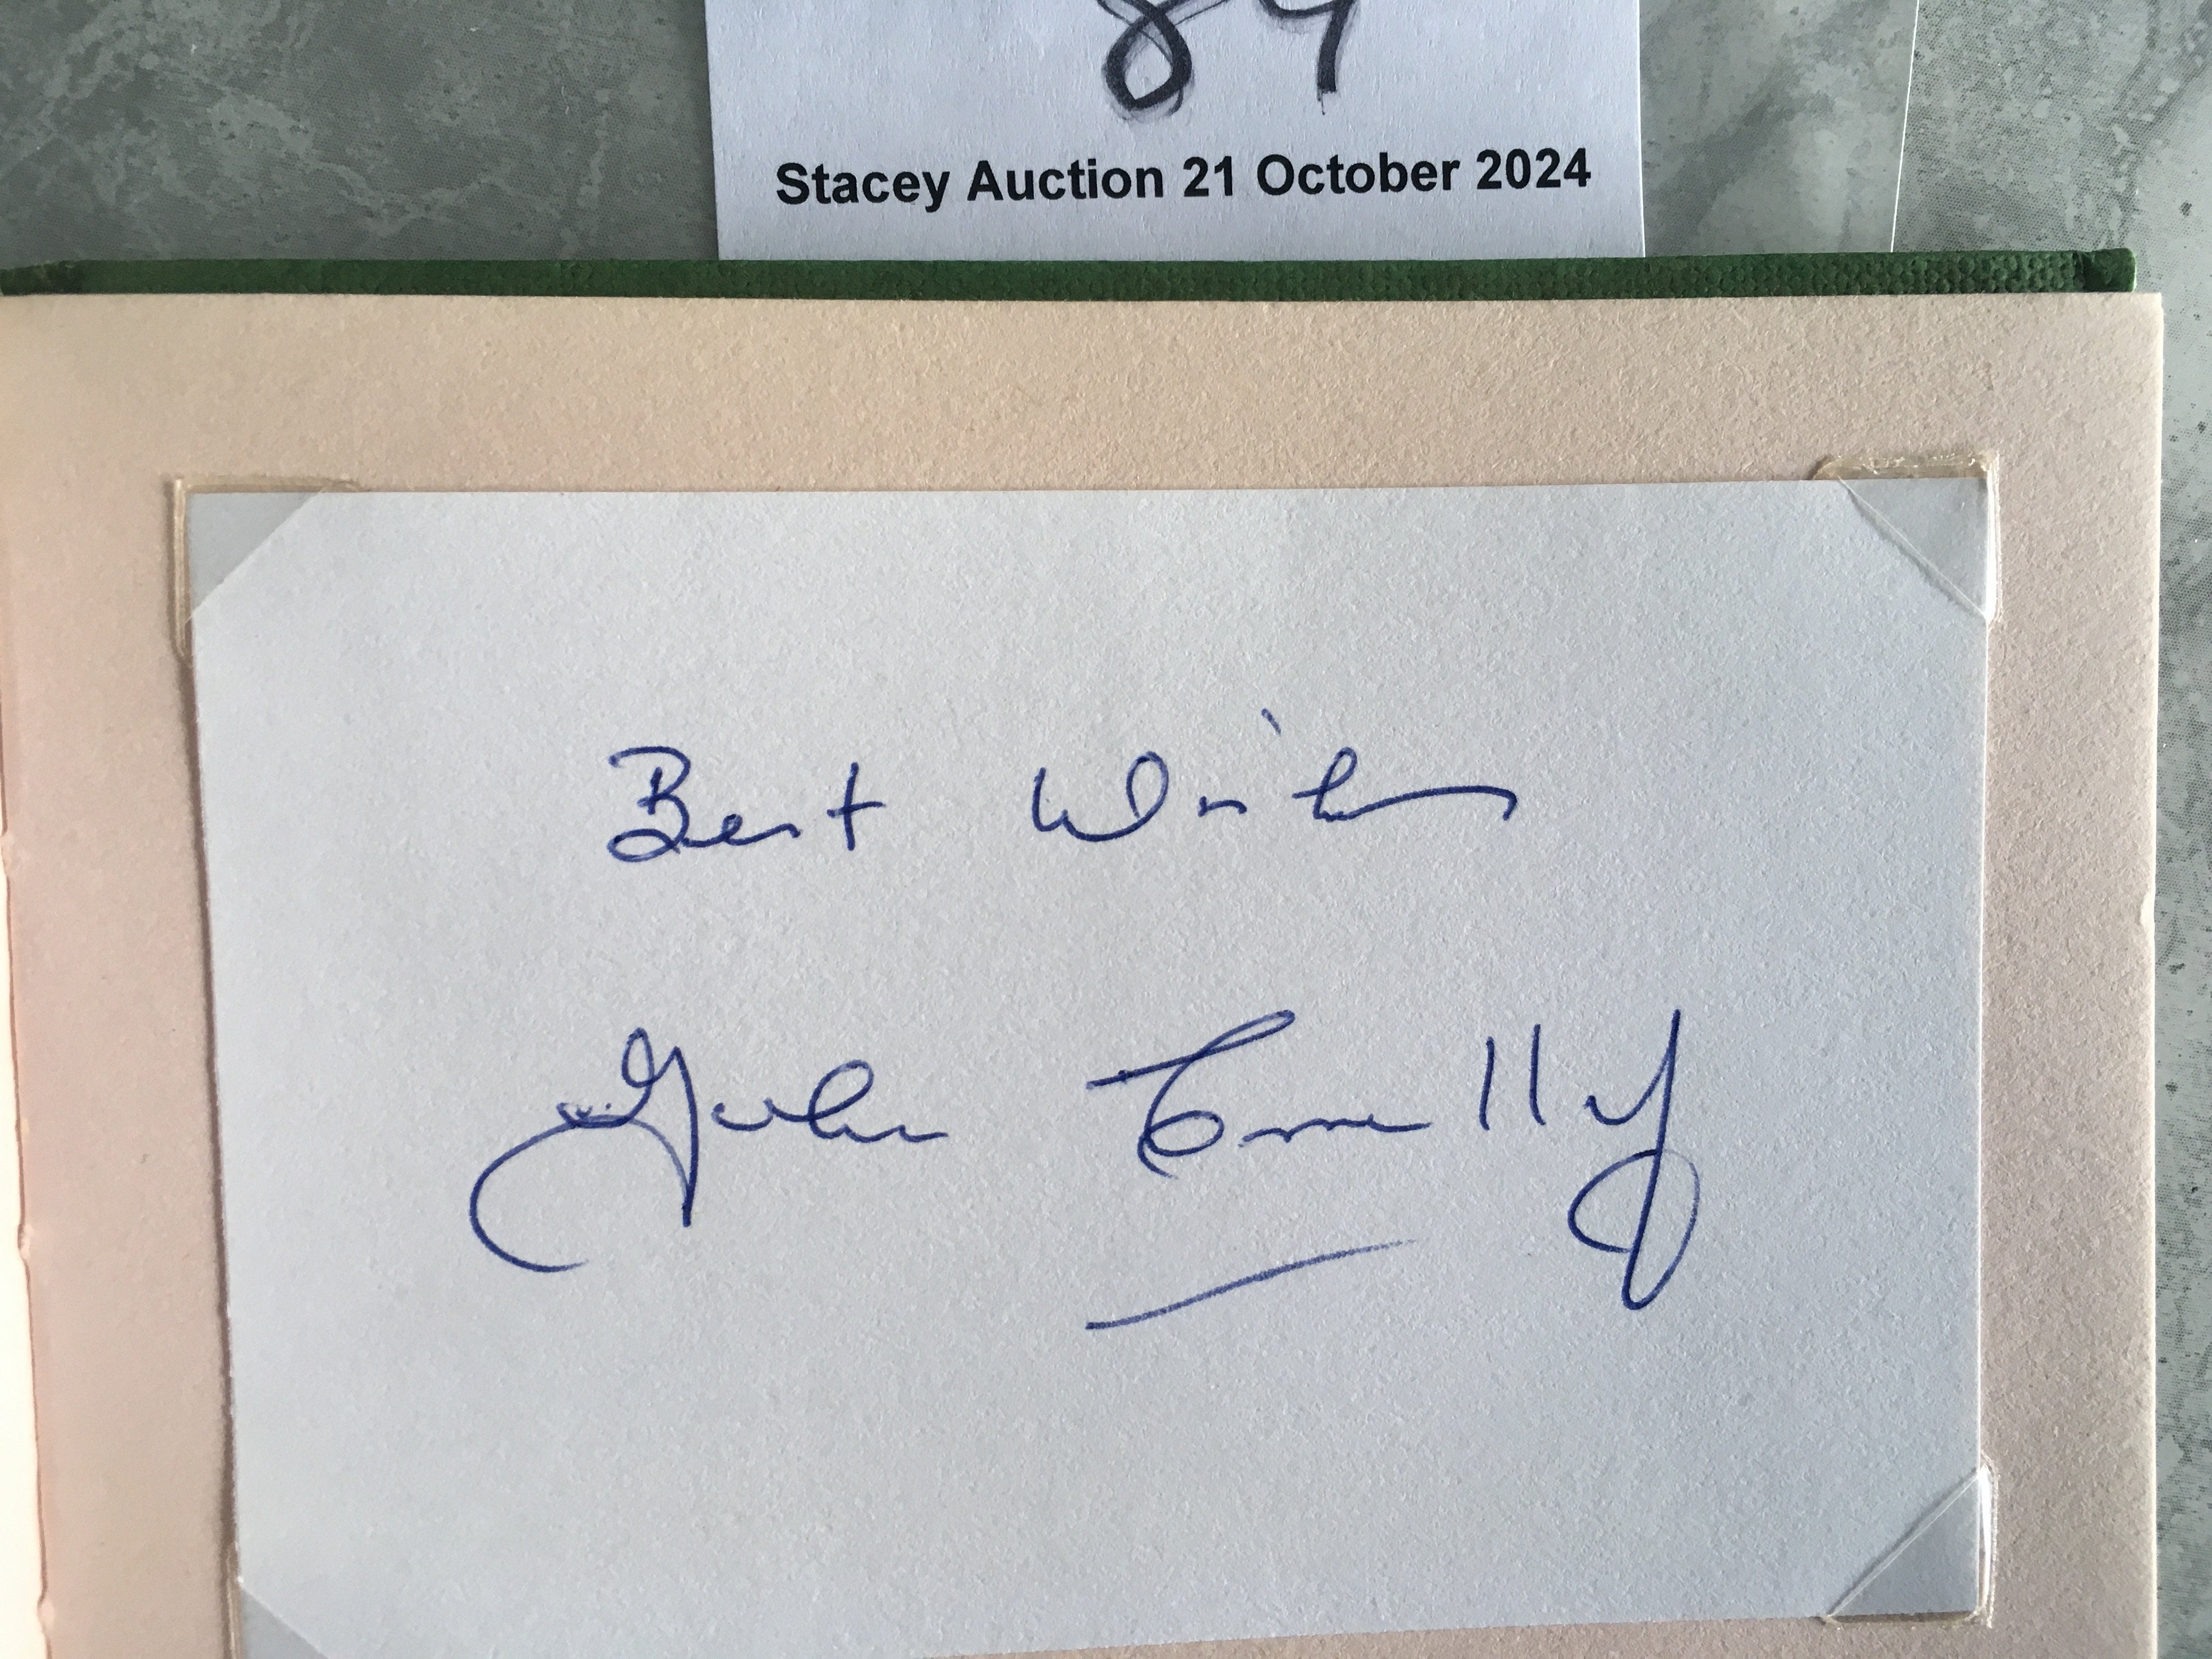 84
Stacey Auction 21 October 2024
Best Wishes
John Connelly